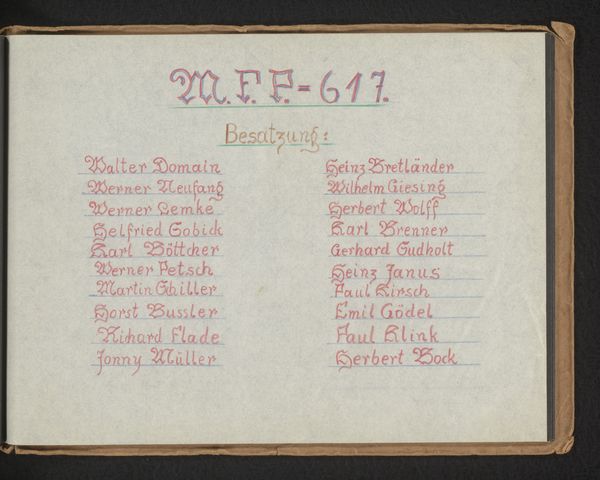 M.F.P.-617.
Besatzung:
Walter Domain
Werner Neufang
Werner Lemke
Helfried Gobick
Karl Böttcher
Werner Petsch
Martin Ghiller
Horst Bussler
Rihard Flade
Jonny Müller
Heinz Bretländer
Wilhelm Giesing
Herbert Wolff
Karl Brenner
Gerhard Gudholt
Heinz Janus
Paul Kirsch
Emil Gödel
Paul Klink
Herbert Bock